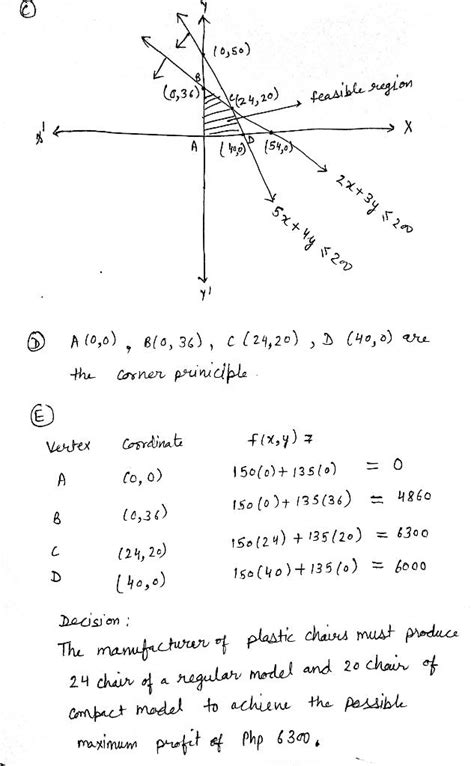 C
y
(0,50)
B
(0,36)
C(24,20)
feasible region
x'
A
(40,0)
D
(54,0)
X
2x+3y ≤ 200
5x+4y ≤ 200
y'
D A(0,0), B(0,36), C(24,20), D (40,0) are
the corner priniciple.
E
Vertex Coordinate f(x,y) =
A (0,0) 150(0)+135(0) = 0
B (0,36) 150(0)+135(36) = 4860
C (24,20) 150(24)+135(20) = 6300
D (40,0) 150(40)+135(0) = 6000
Decision:
The manufacturer of plastic chairs must produce
24 chair of a regular model and 20 chair of
compact model to achieve the possible
maximum profit of Php 6300.